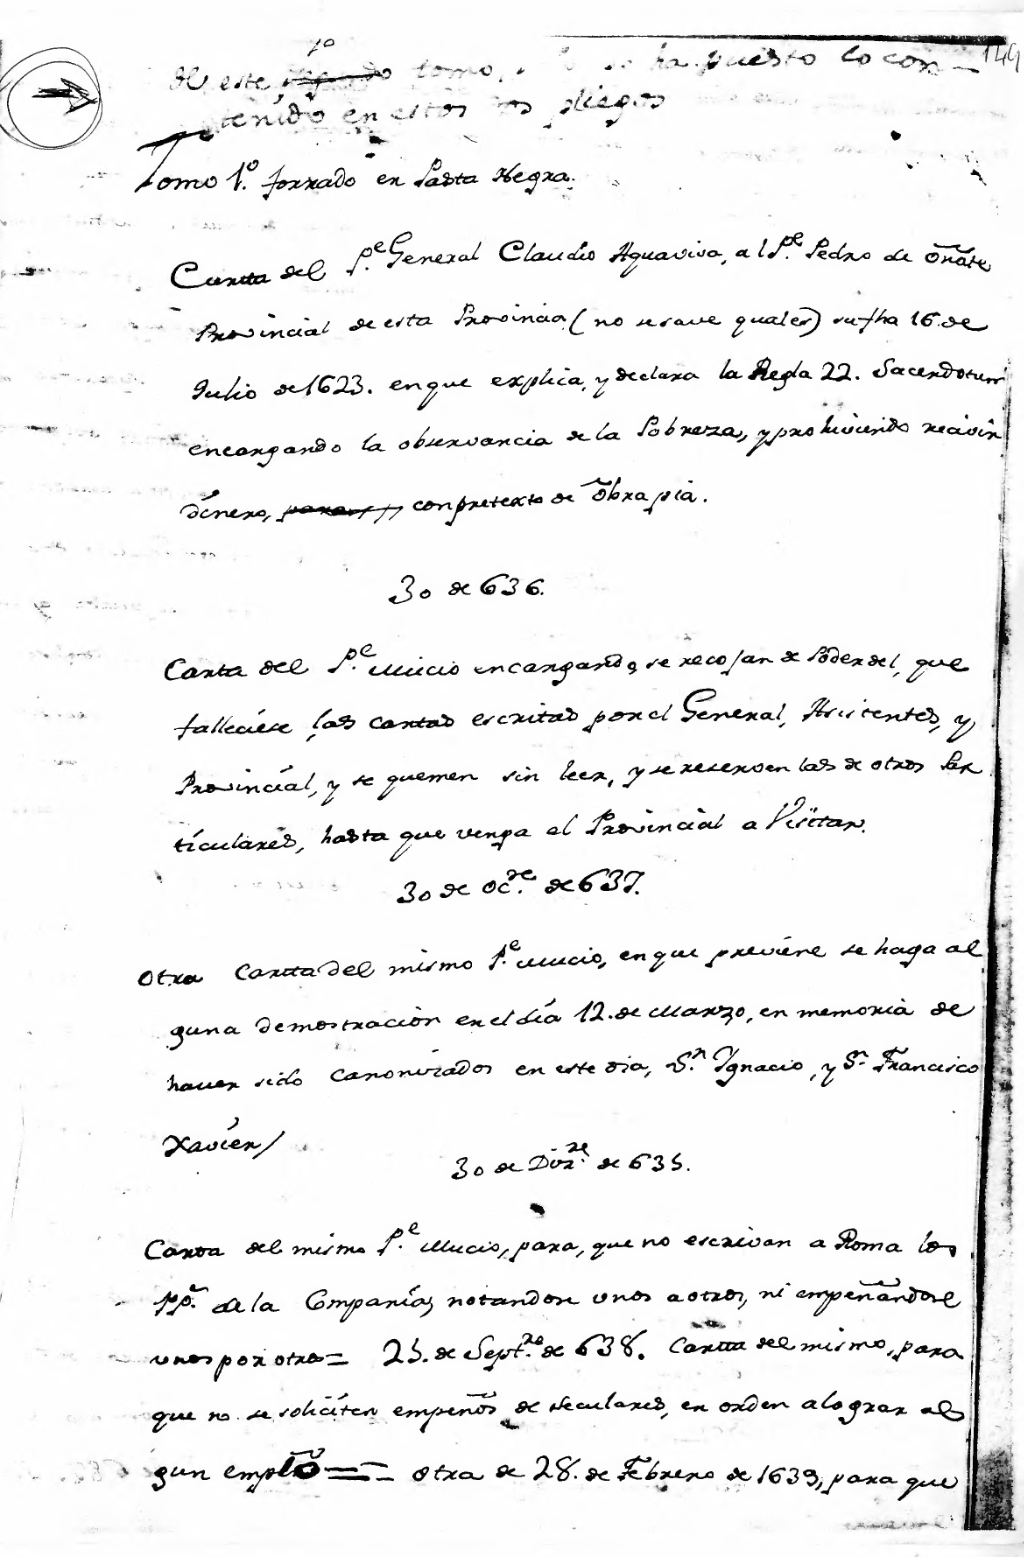 149
1º
de este segundo tomo, se ha puesto lo con-
tenido en estos dos pliegos
Tomo 1.º forrado en Pasta Negra.
Carta del P.e General Claudio Aquaviva, al P.e Pedro de Oñate
Provincial de esta Provincia (no se save qual es) su fha 16 de
Julio de 1623. en que explica, y declara la Regla 22. Sacerdotum
encargando la observancia de la Pobreza, y prohiviendo recivir
dinero, con pretexto de obra pia.
30 de 636.
Carta del P.e Mucio encargando, se recojan de Poder del, que
falleciese las cartas escritas por el General, Asistentes, y
Provincial, y se quemen sin leer, y se reserven las de otros Par
ticulares, hasta que venga el Provincial a Visitar.
30 de Oc.re de 637.
Otra Carta del mismo P.e Mucio, en que previene se haga al
guna demostracion en el dia 12. de Marzo, en memoria de
haver sido canonizados en este dia, S.n Ignacio, y S.n Francisco
Xavier/
30 de Diz.re de 635.
Carta del mismo P.e Mucio, para, que no escrivan a Roma los
PP.s de la Compania, notandose unos a otros, ni empeñandose
unos por otros= 25. de Sept.re de 638. Carta del mismo, para
que no se soliciten empeños de seculares, en orden a lograr al
gun empleo == otra de 28. de Febrero de 1639, para que